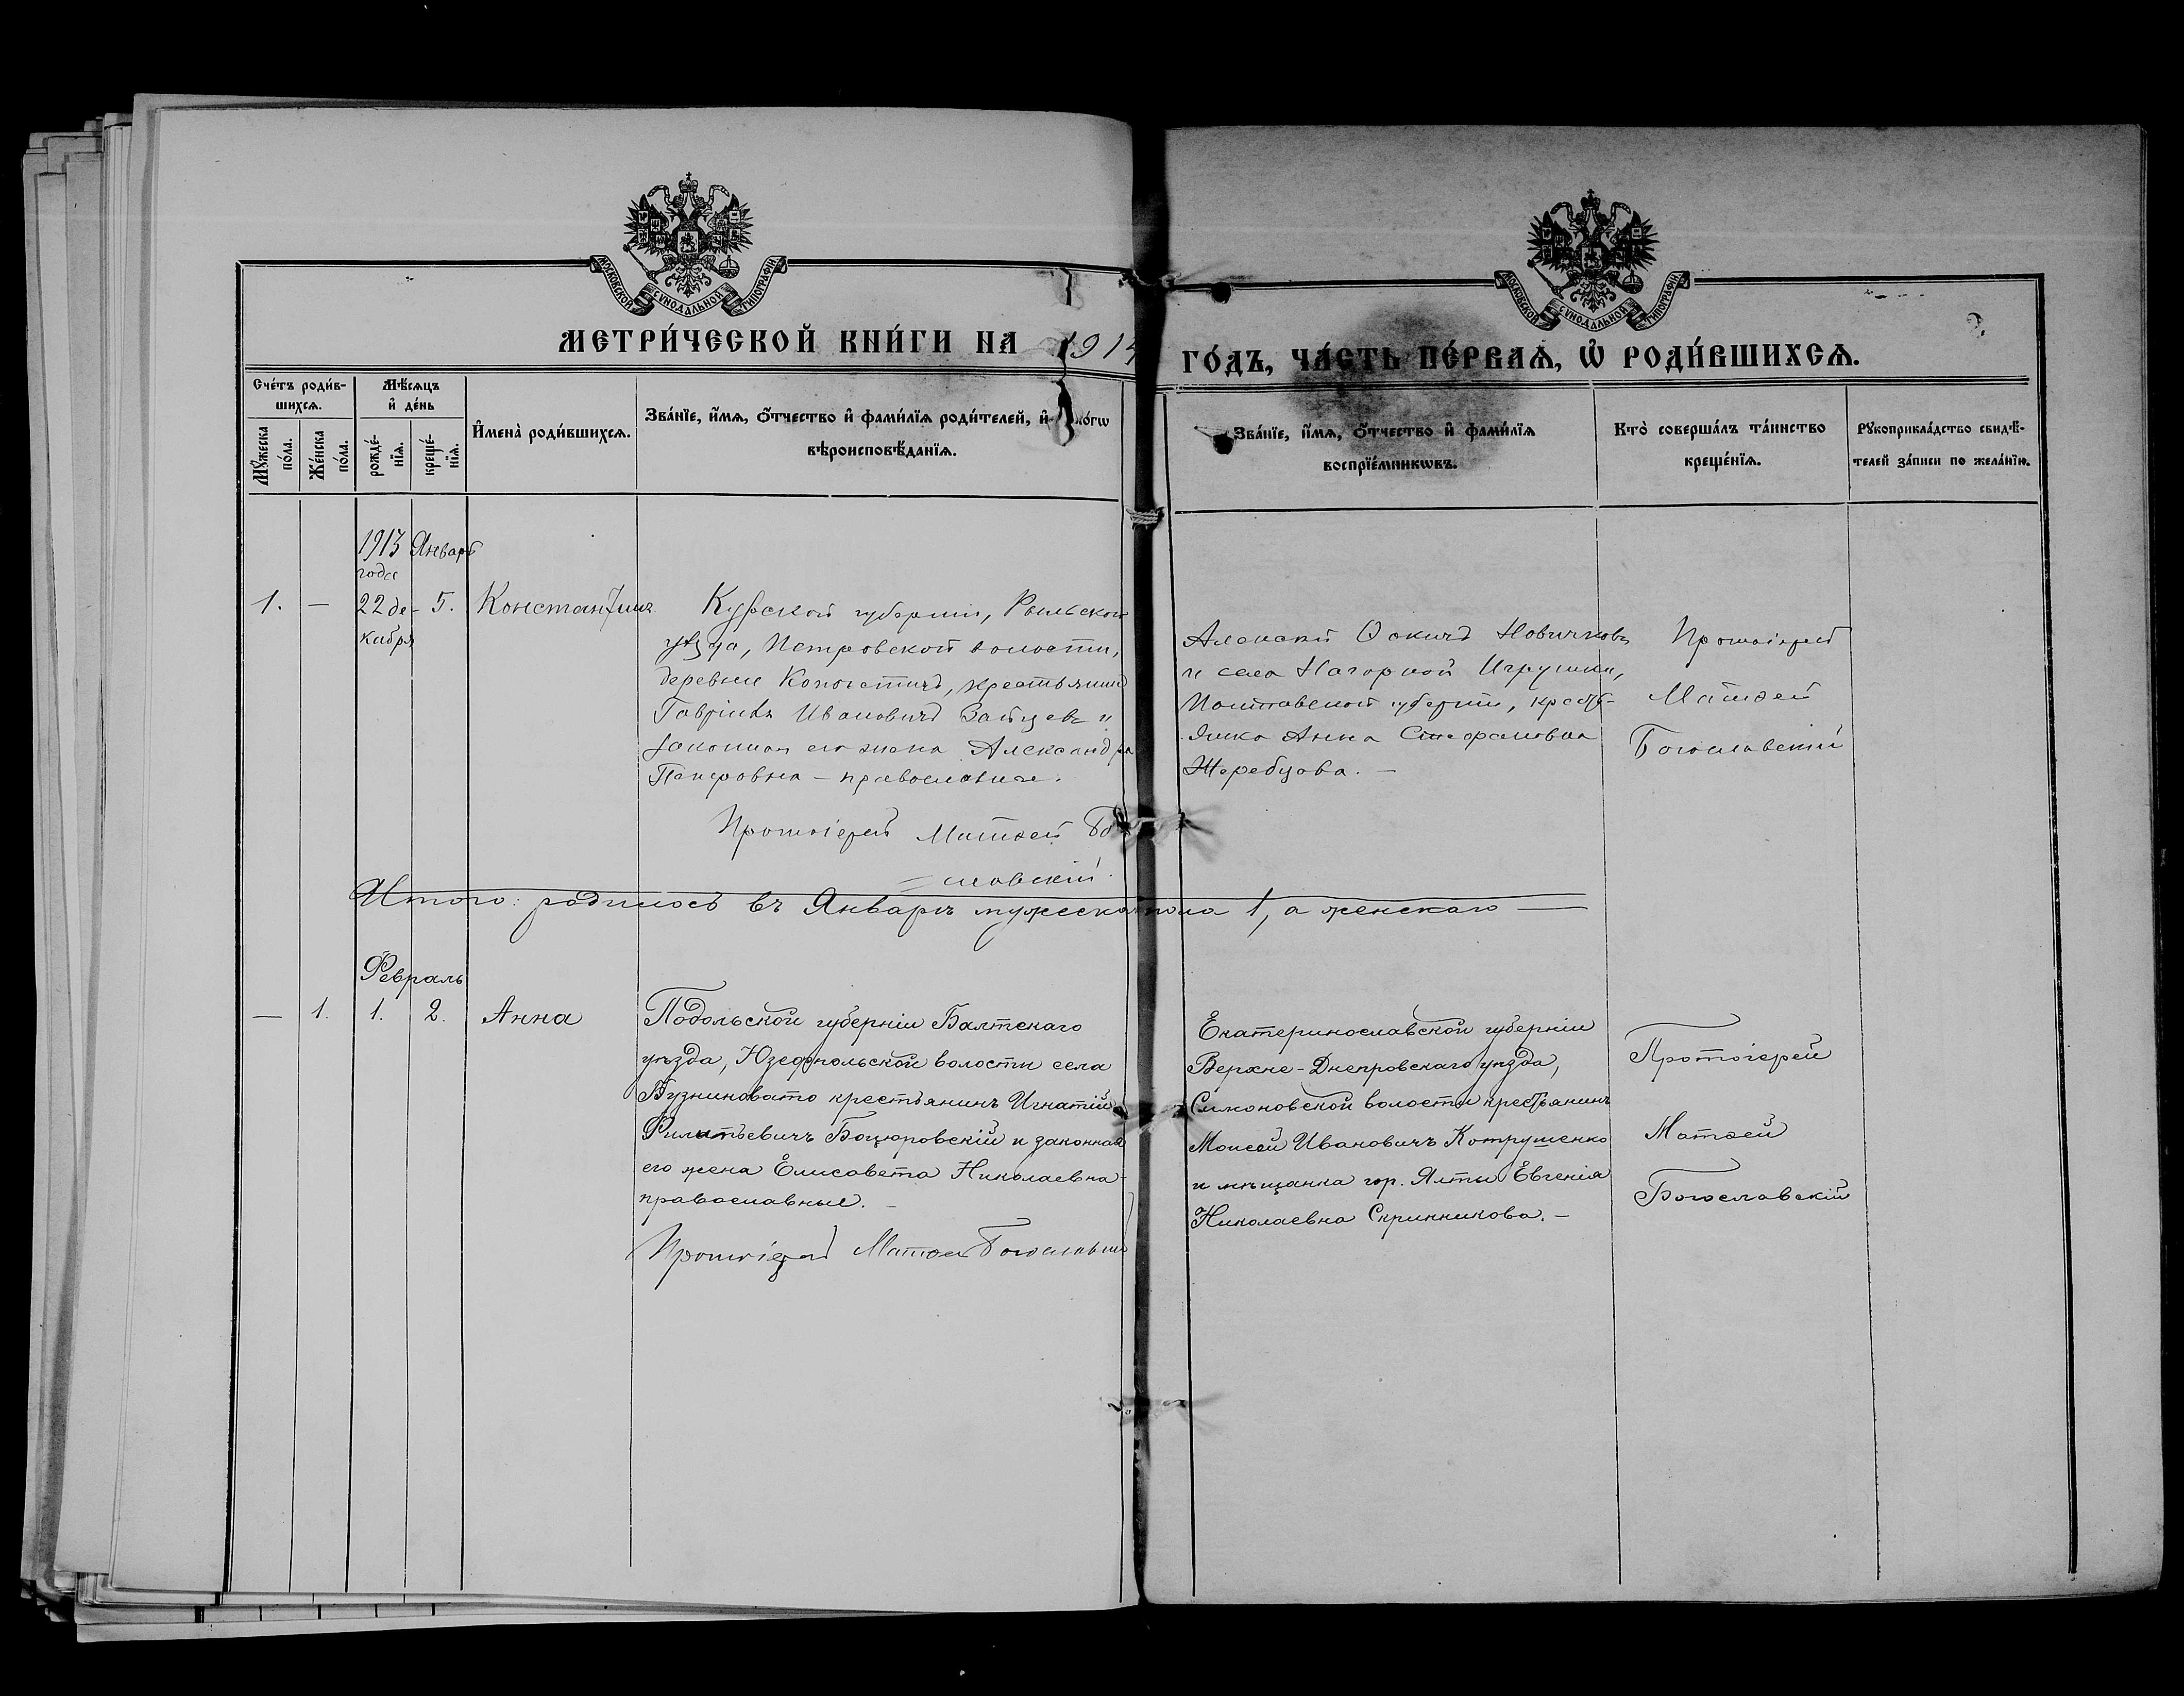 МОСКОВСКОЙ СѴНОДАЛЬНОЙ ТИПОГРАФІИ
МОСКОВСКОЙ СѴНОДАЛЬНОЙ ТИПОГРАФІИ
МЕТРИ́ЧЕСКОЙ КНИ́ГИ НА 1914 ГО́ДЪ, ЧА́СТЬ ПЕ́РВАѦ, Ѡ҆ РОДИ́ВШИХСѦ.
2.
Сче́тъ роди́в-
шихсѧ.
Мꙋ́жеска по́ла.
Же́нска по́ла.
Мѣ́сѧцъ
и҆ де́нь
рожде́-
нїѧ.
креще́-
нїѧ.
И҆мена̀ роди́вшихсѧ.
Зва́нїе, и҆́мѧ, ѻ҆́тчество и҆ фами́лїѧ роди́телей, и҆ ко́гѡ
вѣроисповѣ́данїѧ.
Зва́нїе, и҆́мѧ, ѻ҆́тчество и҆ фами́лїѧ
воспрїе́мникѡвъ.
Кто̀ соверша́лъ та́инство
креще́нїѧ.
Рꙋкоприкла́дство свидѣ́-
телей за́писи по жела́нїю.
1913 Январь
года
1. — 22 де- 5. Константинъ
кабря
Курской губерніи, Рыльскаго
уѣзда, Петровской волости,
деревни крестьянинъ
Гавріилъ Ивановичъ Зайцевъ и
законная его жена Александра
Панфовна – православные.
Протоіерей Матѳей Бо-
словскій.
Алексѣй Новичковъ
и села Нагорной Игрушки,
Полтавской губерніи, кресть-
янка Анна Стефановна
Жеребцова. —
Протоіерей
Матѳей
Богословскій
Итого: родилось въ Январѣ мужеска пола 1, а женскаго —
Февраль
— 1. 1. 2. Анна
Подольской губерніи Балтскаго
уѣзда, Юзефпольской волости села
Бузниковато крестьянинъ Игнатій
Филатьевичъ Боцюровскій и законная
его жена Елисавета Николаевна -
православные. –
Протоіерей Матѳей Богословскій
Екатеринославской губерніи
Верхне-Днепровскаго уѣзда,
Симоновской волости крестьянинъ
Моисей Ивановичъ Котрушенко
и мѣщанка гор. Ялты Евгенія
Николаевна Скринникова. —
Протоіерей
Матѳей
Богословскій